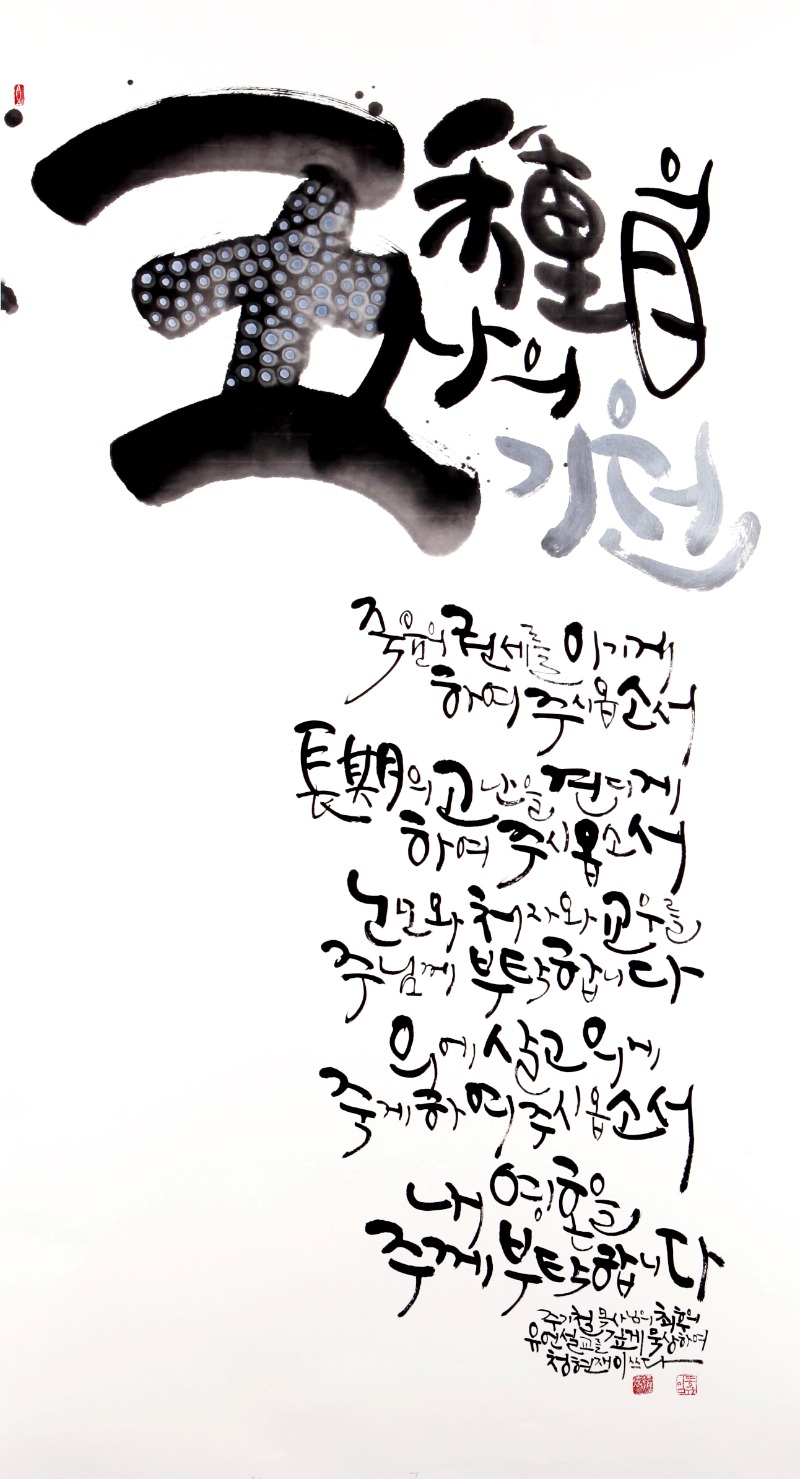 五種目의
나의
기원
죽음의 권세를 이기게
하여 주시옵소서
長期의 고난을 견디게
하여 주시옵소서
노모와 처자와 교우를
주님께 부탁합니다
의에 살고 의에
죽게 하여 주시옵소서
내 영혼을
주께 부탁합니다
주기철 목사님의 최후의
유언설교를 깊게 묵상하여
청현재이 쓰다